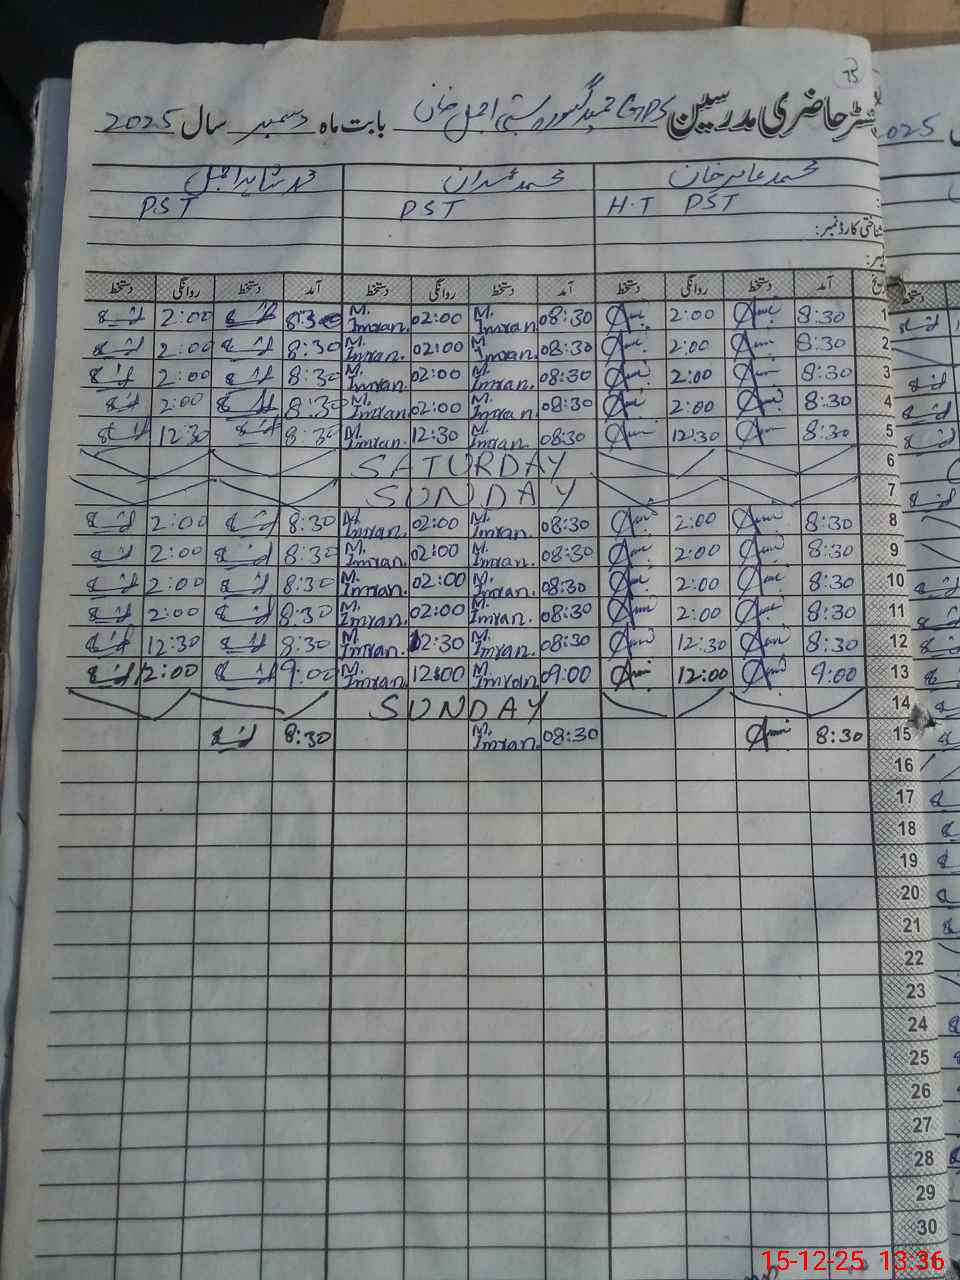 75
رجسٹر حاضری مدرسین GPS حمید گسورہ بستی اجمل خان بابت ماہ دسمبر سال 2025
محمد عامر خان محمد عمران محمد شاہد اجمل
H.T PST PST P.S.T
شناختی کارڈ نمبر:
آمد دستخط روانگی دستخط آمد دستخط روانگی دستخط آمد دستخط روانگی دستخط
1 8:30 2:00 08:30 M. Imran. 02:00 M. Imran. 8:30 2:00
2 8:30 2:00 08:30 M. Imran. 02:00 M. Imran. 8:30 2:00
3 8:30 2:00 08:30 M. Imran. 02:00 M. Imran. 8:30 2:00
4 8:30 2:00 08:30 M. Imran. 02:00 M. Imran. 8:30 2:00
5 8:30 12:30 08:30 M. Imran. 12:30 M. Imran. 8:30 12:30
6 SATURDAY
7 SUNDAY
8 8:30 2:00 08:30 M. Imran. 02:00 M. Imran. 8:30 2:00
9 8:30 2:00 08:30 M. Imran. 02:00 M. Imran. 8:30 2:00
10 8:30 2:00 08:30 M. Imran. 02:00 M. Imran. 8:30 2:00
11 8:30 2:00 08:30 M. Imran. 02:00 M. Imran. 8:30 2:00
12 8:30 12:30 08:30 M. Imran. 12:30 M. Imran. 8:30 12:30
13 9:00 12:00 09:00 M. Imran. 12:00 M. Imran. 9:00 12:00
14 SUNDAY
15 8:30 08:30 M. Imran. 8:30
16
17
18
19
20
21
22
23
24
25
26
27
28
29
30
15-12-25 13:36